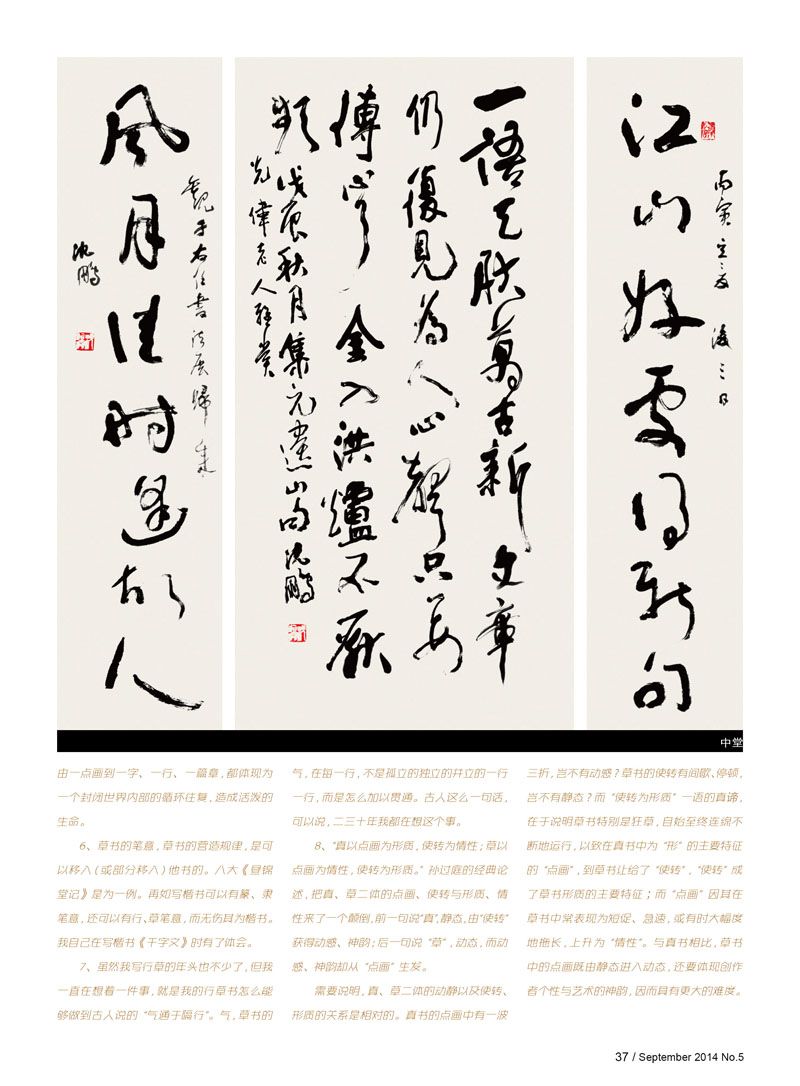 江山好處得新句
丙寅立夏後三日
一語天然萬古新文章
仍復見為人心聲只要
傳心了金入洪爐不厭
頻戊辰秋月集元遺山句沈鵬
先偉老人雅賞
風月佳時逢故人
觀于右任書法展歸集
沈鵬
中堂
由一点画到一字、一行、一篇章,都体现为
一个封闭世界内部的循环往复,造成活泼的
生命。
6、草书的笔意,草书的营造规律,是可
以移入(或部分移入)他书的。八大《昼锦
堂记》是为一例。再如写楷书可以有篆、隶
笔意,还可以有行、草笔意,而无伤其为楷书。
我自己在写楷书《千字文》时有了体会。
7、虽然我写行草的年头也不少了,但我
一直在想着一件事,就是我的行草书怎么能
够做到古人说的“气通于隔行”。气,草书的
气,在每一行,不是孤立的独立的并立的一行
一行,而是怎么加以贯通。古人这么一句话,
可以说,二三十年我都在想这个事。
8、“真以点画为形质,使转为情性;草以
点画为情性,使转为形质。”孙过庭的经典论
述,把真、草二体的点画、使转与形质、情
性来了一个颠倒,前一句说“真”,静态,由“使转”
获得动感、神韵;后一句说“草”,动态,而动
感、神韵却从“点画”生发。
需要说明,真、草二体的动静以及使转、
形质的关系是相对的。真书的点画中有一波
三折,岂不有动感?草书的使转有间歇、停顿,
岂不有静态?而“使转为形质”一语的真谛,
在于说明草书特别是狂草,自始至终连绵不
断地运行,以致在真书中为“形”的主要特征
的“点画”,到草书让给了“使转”,“使转”成
了草书形质的主要特征;而“点画”因其在
草书中常表现为短促、急速,或有时大幅度
地拖长,上升为“情性”。与真书相比,草书
中的点画既由静态进入动态,还要体现创作
者个性与艺术的神韵,因而具有更大的难度。
37 / September 2014 No.5